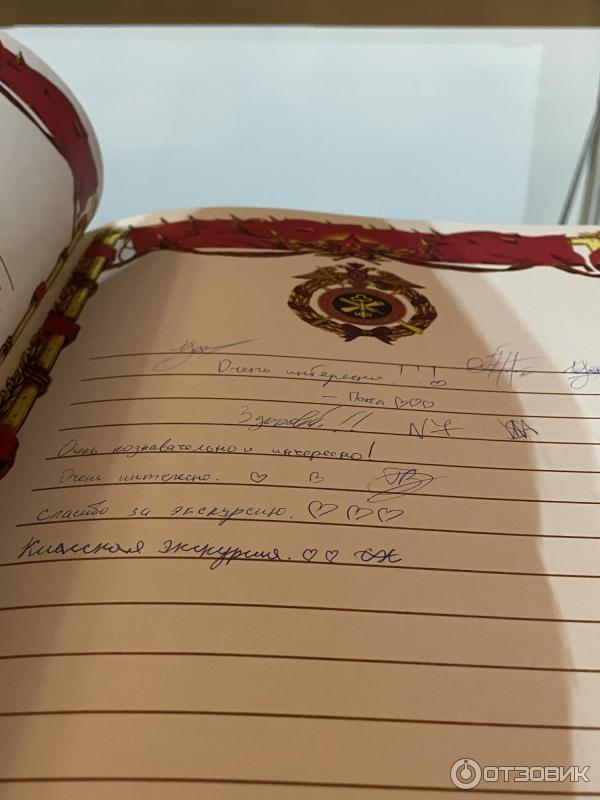 Очень интересно!!!
– Пока ♡♡♡
Здорово!!
Очнь познавательно и интересно!
Очень интересно. ♡ ♡
Спасибо за экскурсию. ♡♡♡
Классная экскурсия. ♡♡
ОТЗОВИК